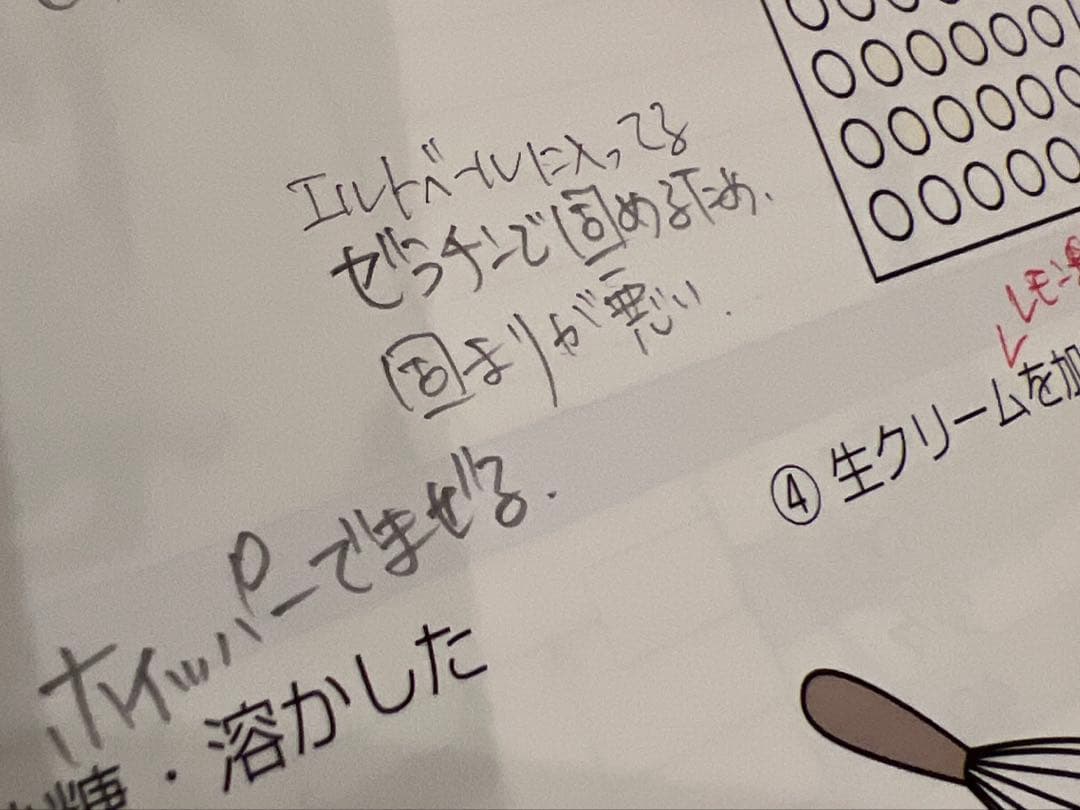 エルドベールに入ってる
ゼラチンで固めるため.
固まりが悪い.
レモン
④ 生クリームを加
ホイッパーでまぜる.
糖・溶かした